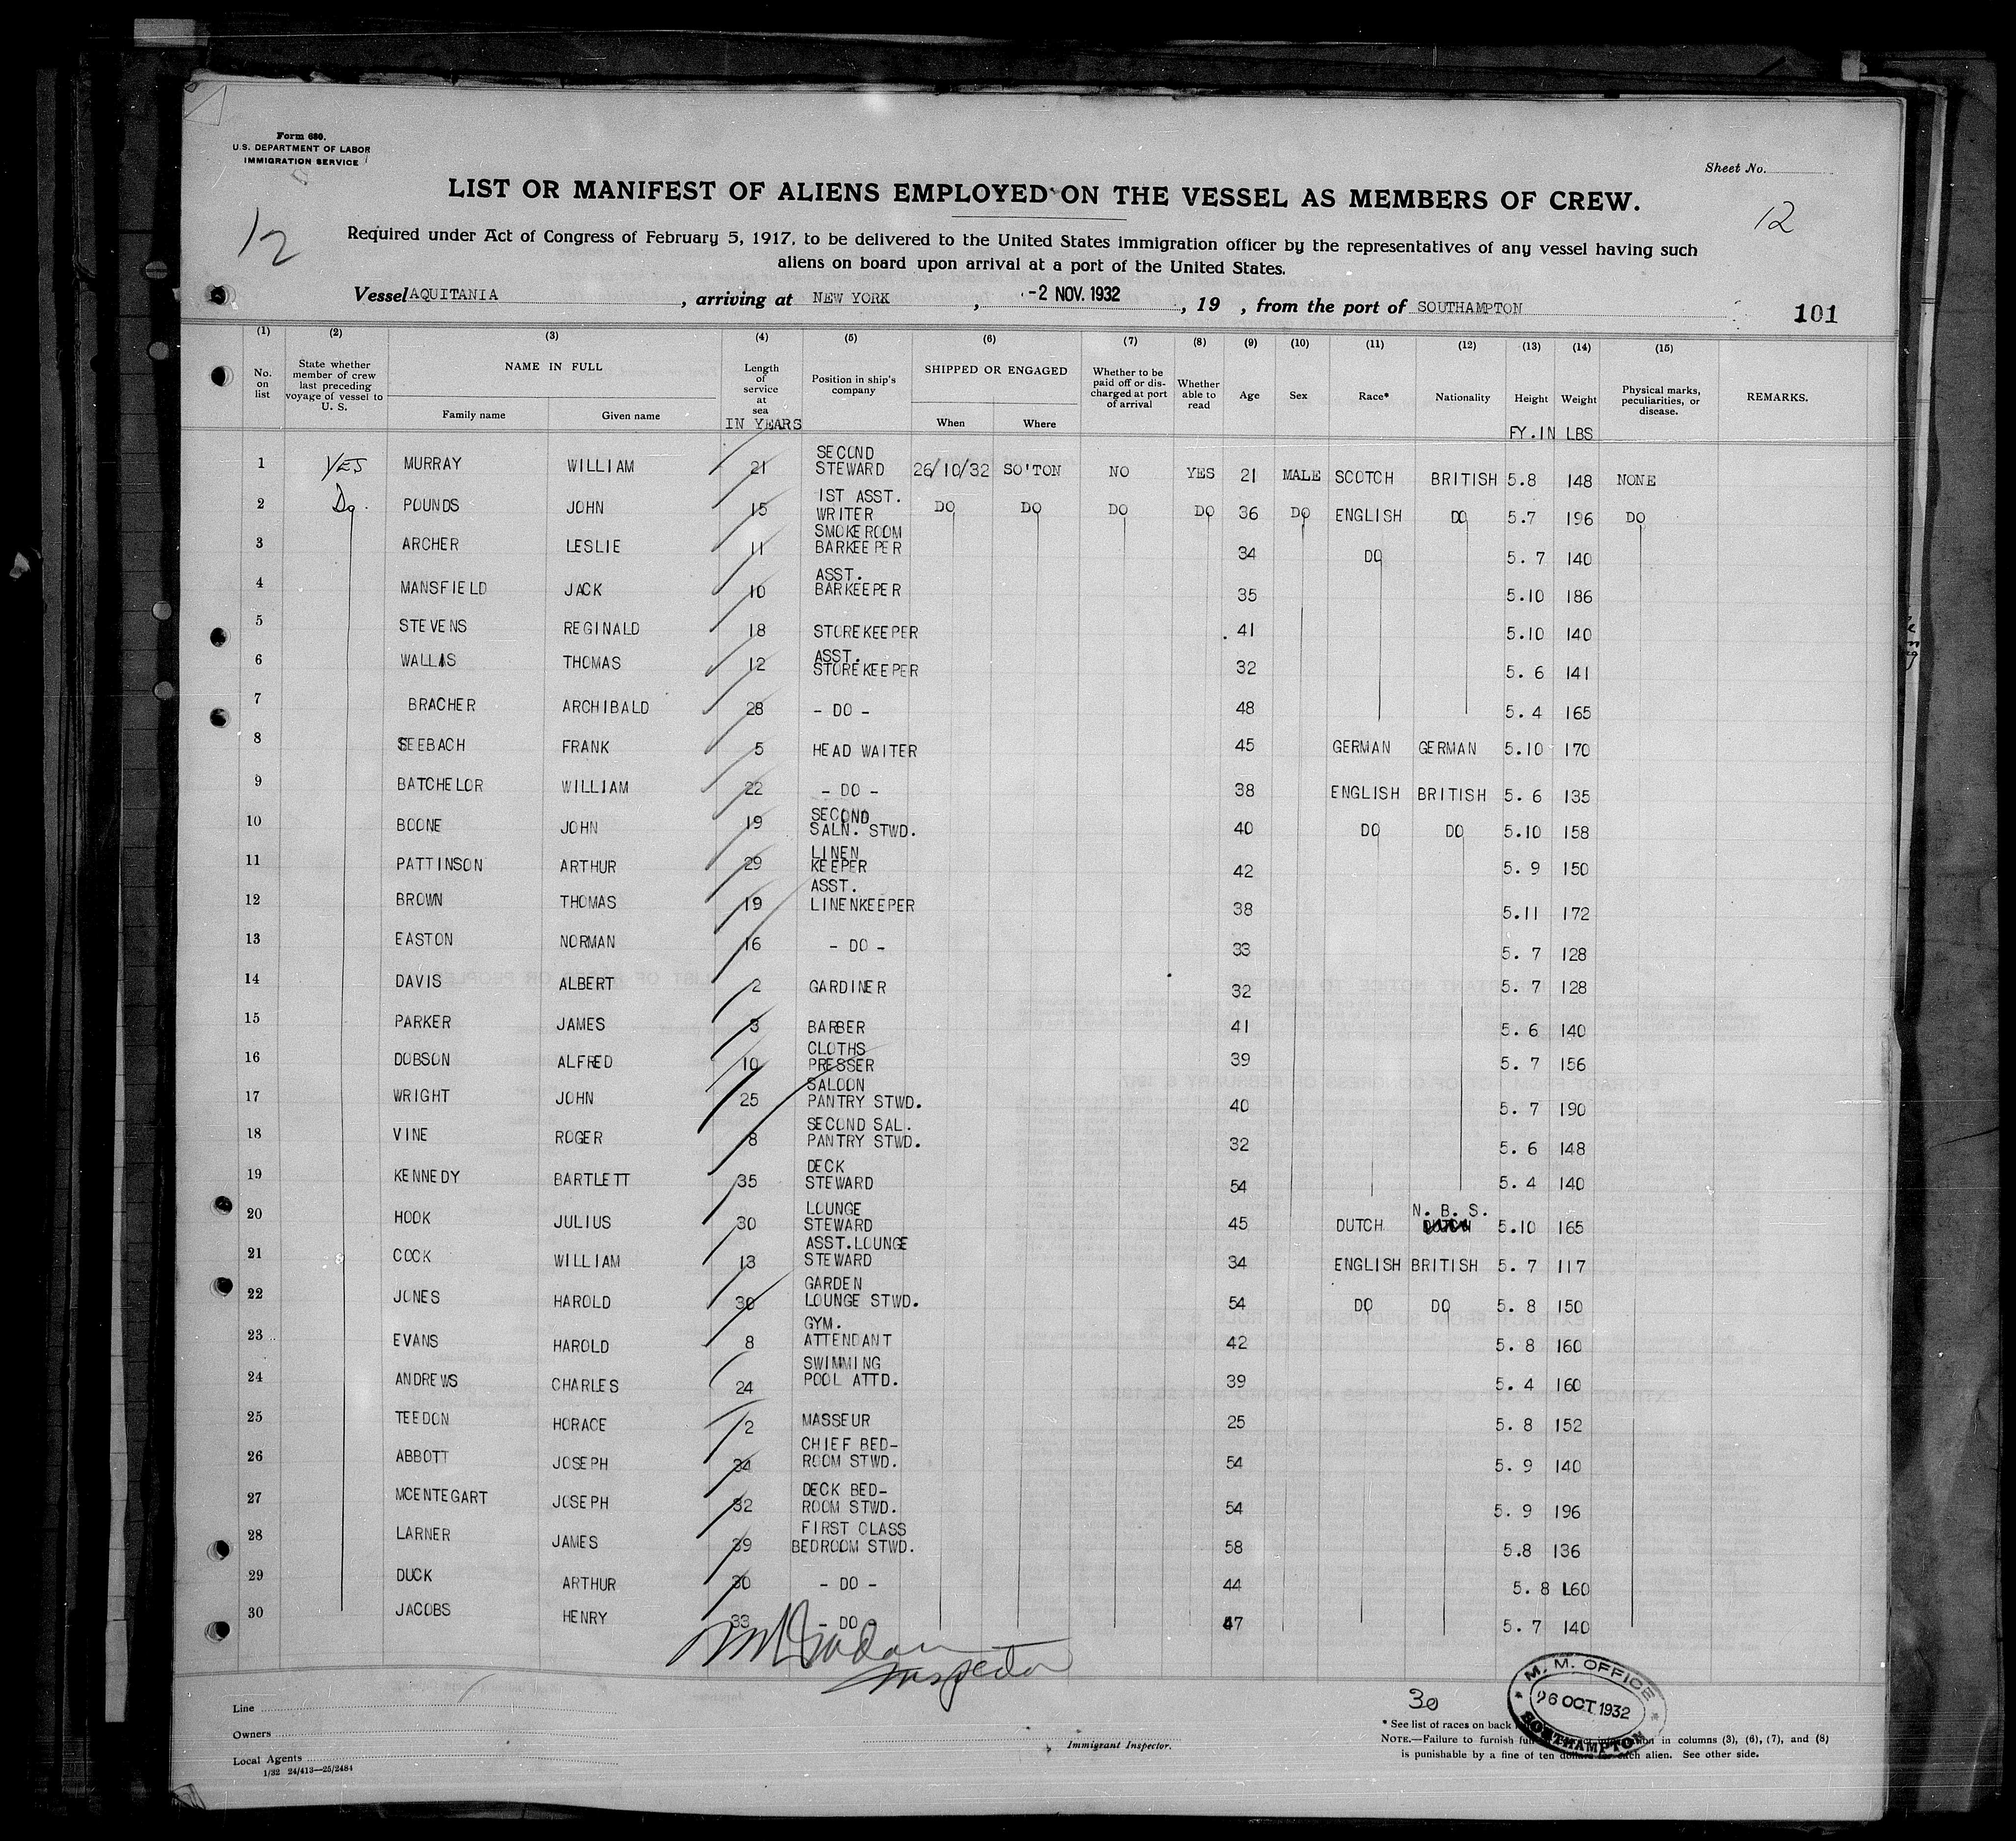 Form 680.
U.S. DEPARTMENT OF LABOR
IMMIGRATION SERVICE
Sheet No.
LIST OR MANIFEST OF ALIENS EMPLOYED ON THE VESSEL AS MEMBERS OF CREW.
12
12
Required under Act of Congress of February 5, 1917, to be delivered to the United States immigration officer by the representatives of any vessel having such
aliens on board upon arrival at a port of the United States.
Vessel AQUITANIA , arriving at NEW YORK , -2 NOV. 1932 , 19 , from the port of SOUTHAMPTON
101
(1) (2) (3) (4) (5) (6) (7) (8) (9) (10) (11) (12) (13) (14) (15)
No. on list
State whether member of crew last preceding voyage of vessel to U. S.
NAME IN FULL
Family name
Given name
Length of service at sea
IN YEARS
Position in ship's company
SHIPPED OR ENGAGED
When
Where
Whether to be paid off or discharged at port of arrival
Whether able to read
Age
Sex
Race*
Nationality
Height
FY.IN
Weight
LBS
Physical marks, peculiarities, or disease.
REMARKS.
1 YES MURRAY WILLIAM 21 SECOND STEWARD 26/10/32 SO'TON NO YES 21 MALE SCOTCH BRITISH 5.8 148 NONE
2 Do. POUNDS JOHN 15 1ST ASST. WRITER DO DO DO DO 36 DO ENGLISH DO 5.7 196 DO
3 ARCHER LESLIE 11 SMOKEROOM BARKEEPER 34 DO 5. 7 140
4 MANSFIELD JACK 10 ASST. BARKEEPER 35 5.10 186
5 STEVENS REGINALD 18 STOREKEEPER 41 5.10 140
6 WALLIS THOMAS 12 ASST. STOREKEEPER 32 5. 6 141
7 BRACHER ARCHIBALD 28 - DO - 48 5. 4 165
8 SEEBACH FRANK 5 HEAD WAITER 45 GERMAN GERMAN 5.10 170
9 BATCHELOR WILLIAM 22 - DO - 38 ENGLISH BRITISH 5. 6 135
10 BOONE JOHN 19 SECOND SALN. STWD. 40 DO DO 5.10 158
11 PATTINSON ARTHUR 29 LINEN KEEPER 42 5. 9 150
12 BROWN THOMAS 19 ASST. LINENKEEPER 38 5.11 172
13 EASTON NORMAN 16 - DO - 33 5. 7 128
14 DAVIS ALBERT 2 GARDINER 32 5. 7 128
15 PARKER JAMES 3 BARBER 41 5. 6 140
16 DOBSON ALFRED 10 CLOTHS PRESSER 39 5. 7 156
17 WRIGHT JOHN 25 SALOON PANTRY STWD. 40 5. 7 190
18 VINE ROGER 8 SECOND SAL. PANTRY STWD. 32 5. 6 148
19 KENNEDY BARTLETT 35 DECK STEWARD 54 5. 4 140
20 HOOK JULIUS 30 LOUNGE STEWARD 45 DUTCH N. B. S. DUTCH 5.10 165
21 COCK WILLIAM 13 ASST.LOUNGE STEWARD 34 ENGLISH BRITISH 5. 7 117
22 JONES HAROLD 30 GARDEN LOUNGE STWD. 54 DO DO 5. 8 150
23 EVANS HAROLD 8 GYM. ATTENDANT 42 5. 8 160
24 ANDREWS CHARLES 24 SWIMMING POOL ATTD. 39 5. 4 160
25 TEEDON HORACE 2 MASSEUR 25 5. 8 152
26 ABBOTT JOSEPH 34 CHIEF BED- ROOM STWD. 54 5. 9 140
27 MCENTEGART JOSEPH 32 DECK BED- ROOM STWD. 54 5. 9 196
28 LARNER JAMES 39 FIRST CLASS BEDROOM STWD. 58 5.8 136
29 DUCK ARTHUR 30 - DO - 44 5. 8 160
30 JACOBS HENRY 33 - DO 47 5. 7 140
Inspector
Line
Owners
Local Agents
1/32 24/413—25/2484
Immigrant Inspector.
30
M. M. OFFICE
26 OCT 1932
SOUTHAMPTON
* See list of races on back
NOTE.—Failure to furnish full in columns (3), (6), (7), and (8)
is punishable by a fine of ten dollars for each alien. See other side.